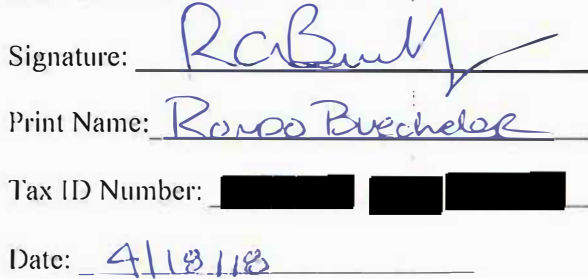 Signature:
Print Name: Rondo Buecheler
Tax ID Number:
Date: 4/18/18